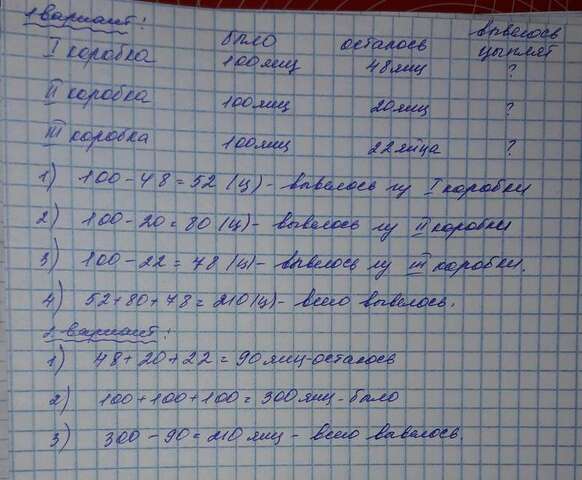 1 вариант:
было осталось вывелось цыплят
I коробка 100 яиц 48 яиц ?
II коробка 100 яиц 20 яиц ?
III коробка 100 яиц 22 яйца ?
1) 100 - 48 = 52 (ц) - вывелось из I коробки
2) 100 - 20 = 80 (ц) - вывелось из II коробки
3) 100 - 22 = 78 (ц) - вывелось из III коробки.
4) 52 + 80 + 78 = 210 (ц) - всего вывелось.
2 вариант:
1) 48 + 20 + 22 = 90 яиц - осталось
2) 100 + 100 + 100 = 300 яиц - было
3) 300 - 90 = 210 яиц - всего вывелось.